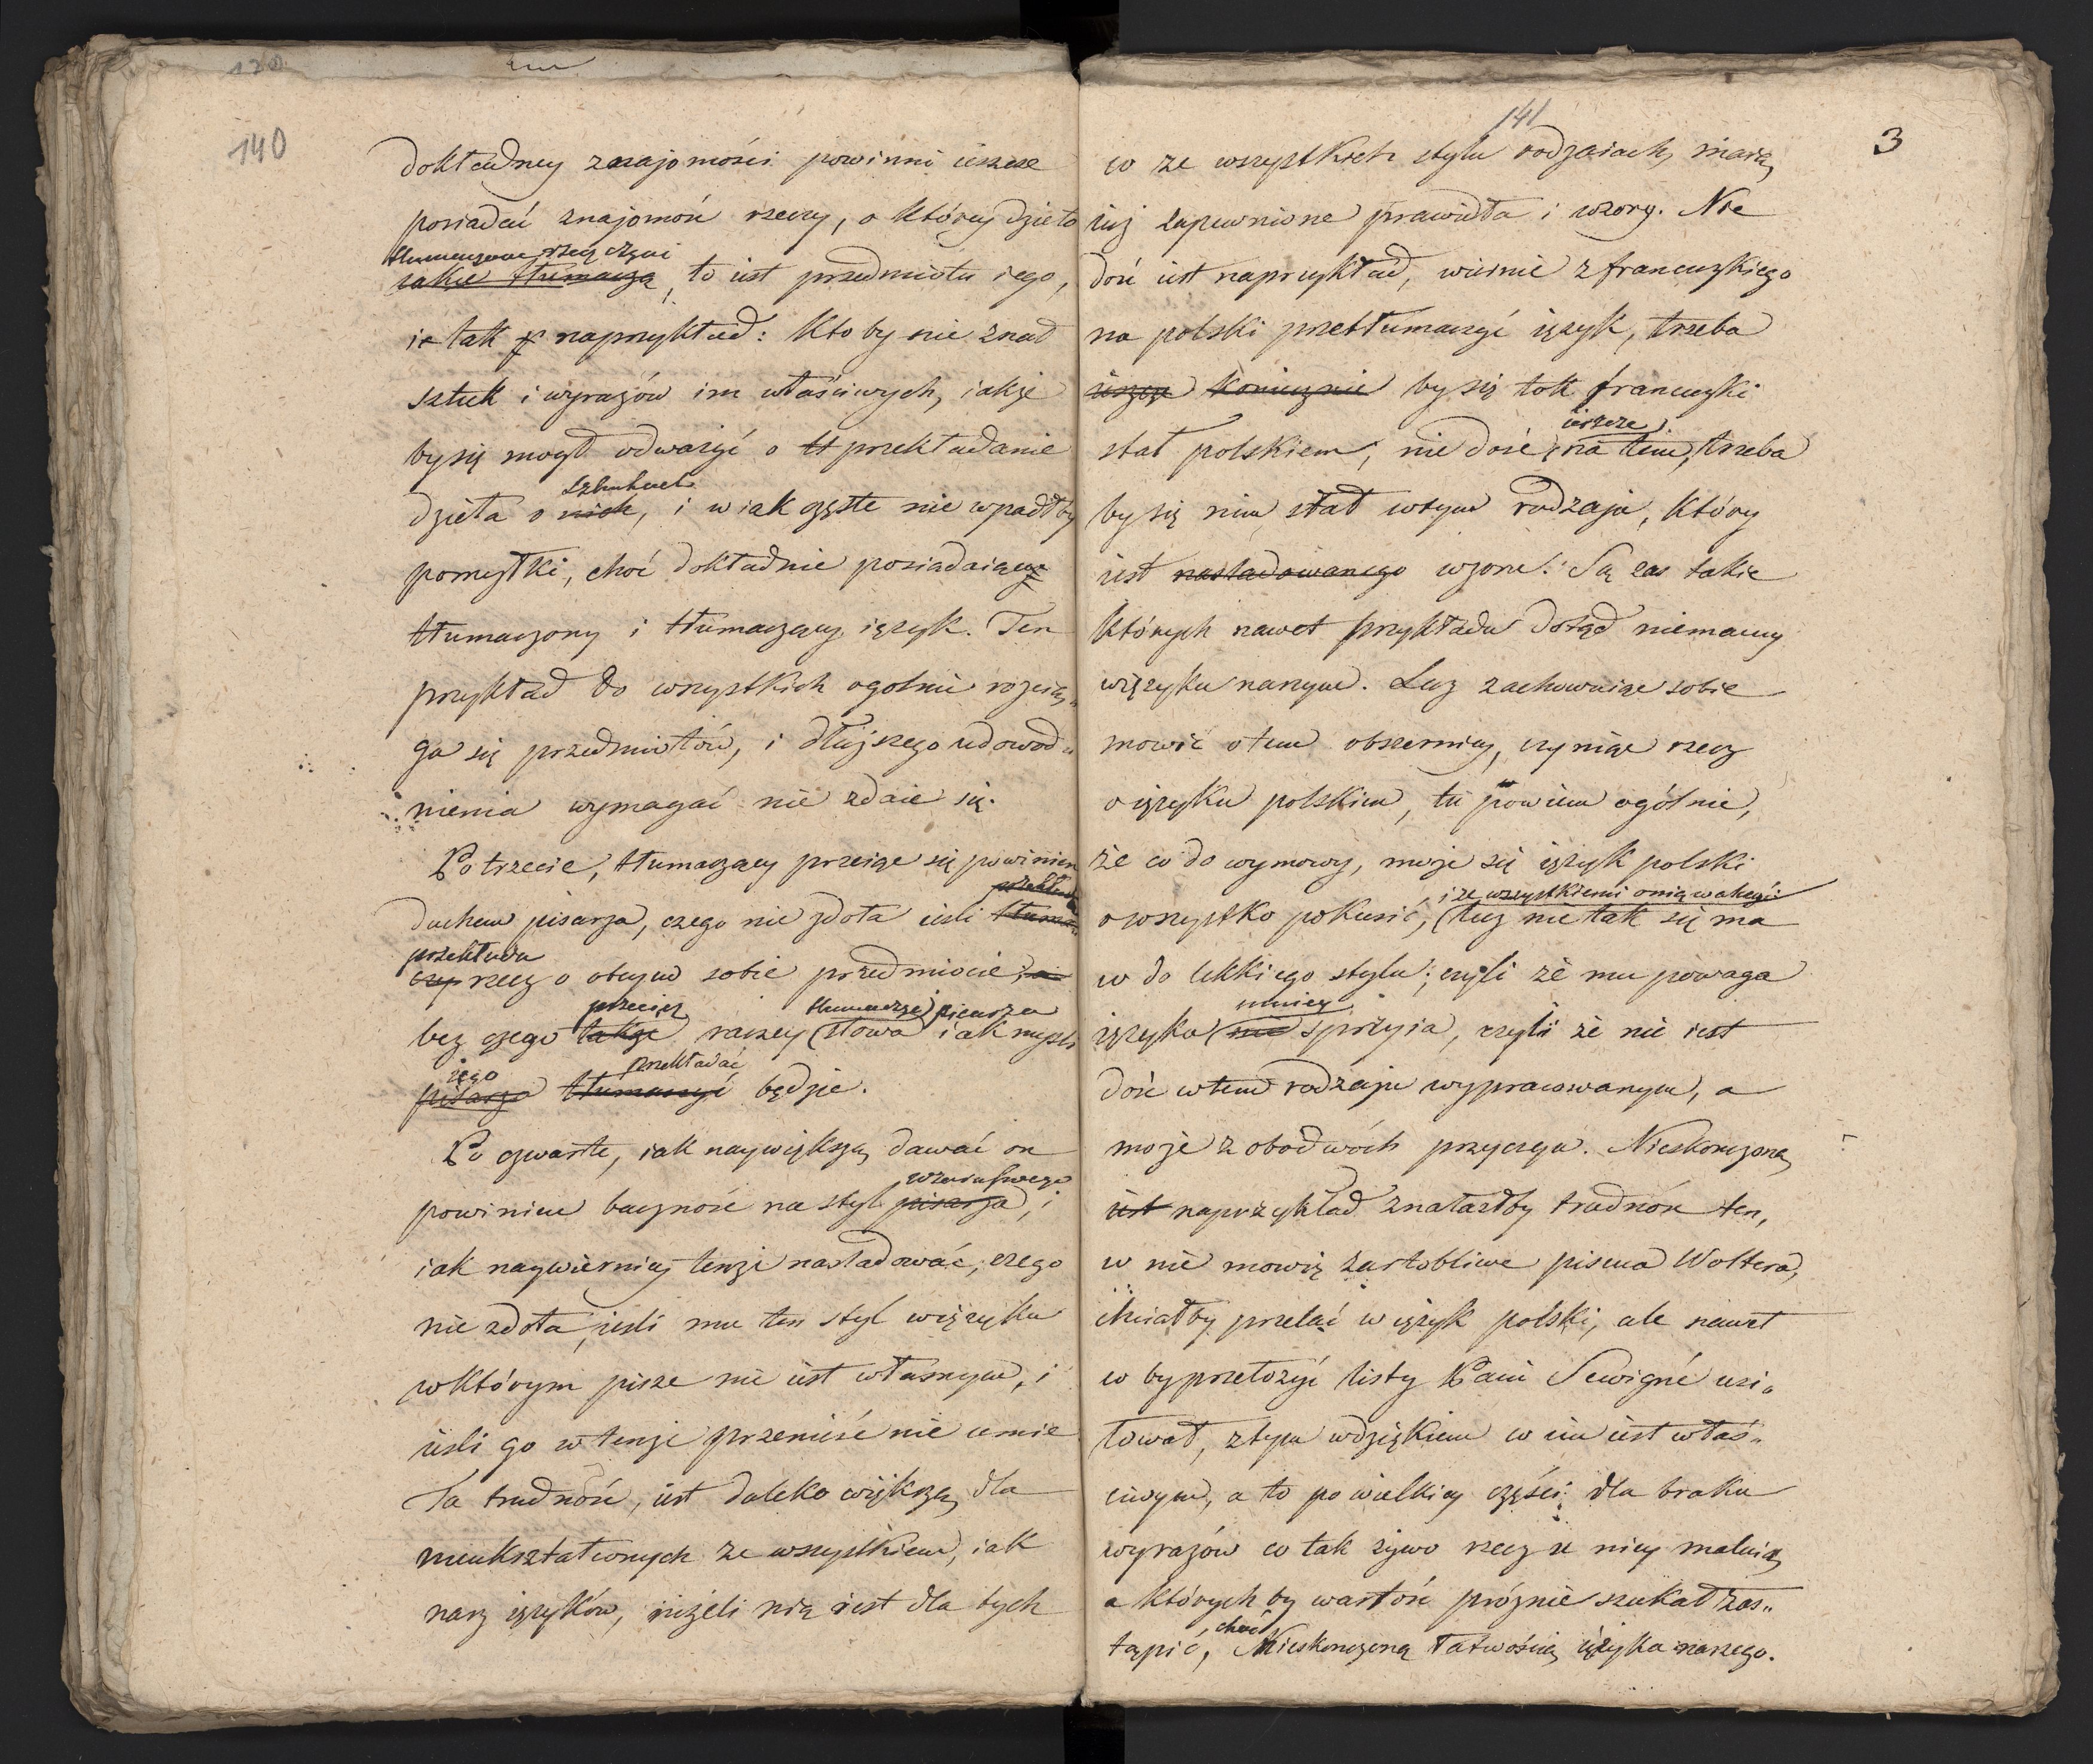 140
dokładney znajomości powinni ieszcze
posiadać znajomość rzeczy, o którey dzieło
tłumaczone rzecz czyni
takie tłumaczą, to iest przedmiotu iego,
ie tak naprzykład: kto by nie znał
sztuk i wyrazów im właściwych, iakże
by się mógł odważyć o tł przekładanie
sztukach
dzieła o nich, i w iak gęste nie wpadłby
pomyłki, choć dokładnie posiadaiący
tłumaczony i tłumaczący ięzyk. Ten
przykład do wszystkich ogolnie rozcią„
ga się przedmiotów, i dłuższego udowod„
nienia wymagać nie zdaie się.
Po trzecie, tłumaczący przeiąć się powinien
przekłada
duchem pisarza, czego nie zdoła ieśli tłuma„
przekładu
czy rzecz o obcym sobie przedmiocie, a
przecież tłumacząc pisarza
bez czego także raczey (słowa iak myśli
iego przekładać
pisarza tłumaczyć będzie.
Po czwarte, iak naywiększą dawać on
wzoru swego
powinien baczność na styl pisarza, i
iak naywierniey tenże nasladować, czego
nie zdoła, ieśli mu ten styl w ięzyku
w którym pisze nie iest własnym, i
ieśli go w tenże przenieść nie umie
Ta trudność, iest daleko większą, dla
nieukształconych ze wszystkiem, iak
nasz ięzyków, niżeli nią iest dla tych
141
3
co ze wszystkich stylu rodzaiach, maią,
iuż zapewnione prawidła i wzory. Nie
dość iest naprzykład, wiernie z francuzkiego
na polski przetłumaczyć ięzyk, trzeba
ieszcze koniecznie by się tok francuzki
ieszcze
stał polskiem, nie dość na tem, trzeba
by się nim stał w tym rodzaju, który
iest nasladowanego wzoru. Są zas takie
których nawet przykładu dotąd niemamy
w ięzyku naszym. Lecz zachowuiąc sobie
mowić o tem obszerniey, czyniąc rzecz
o ięzyku polskim, tu powiem ogólnie,
że co do wymowy, może się ięzyk polski
i ze wszystkiemi o nią walczyć
o wszystko pokusić, (lecz nie tak się ma
co do lekkiego stylu; czyli że mu powaga
mniey
ięzyka (nie sprzyia, czyli że nie iest
dość w tem rodzaju wypracowanym, a
może z obodwóch przyczyn. Nieskonczoną,
iest naprzykład znalazłby trudność ten,
co nie mowię żartobliwe pisma Woltera,
chciałby przelać w ięzyk polski, ale nawet
co by przełożyć listy Pani Sewigné usi„
łował, z tym wdziękiem co im iest właś„
ciwym, a to po wielkiey części dla braku
wyrazów co tak żywo rzecz w niey maluią,
a których by wartość próżnie szukał zas„
choć
tąpić, Nieskonczoną łatwością ięzyka naszego.